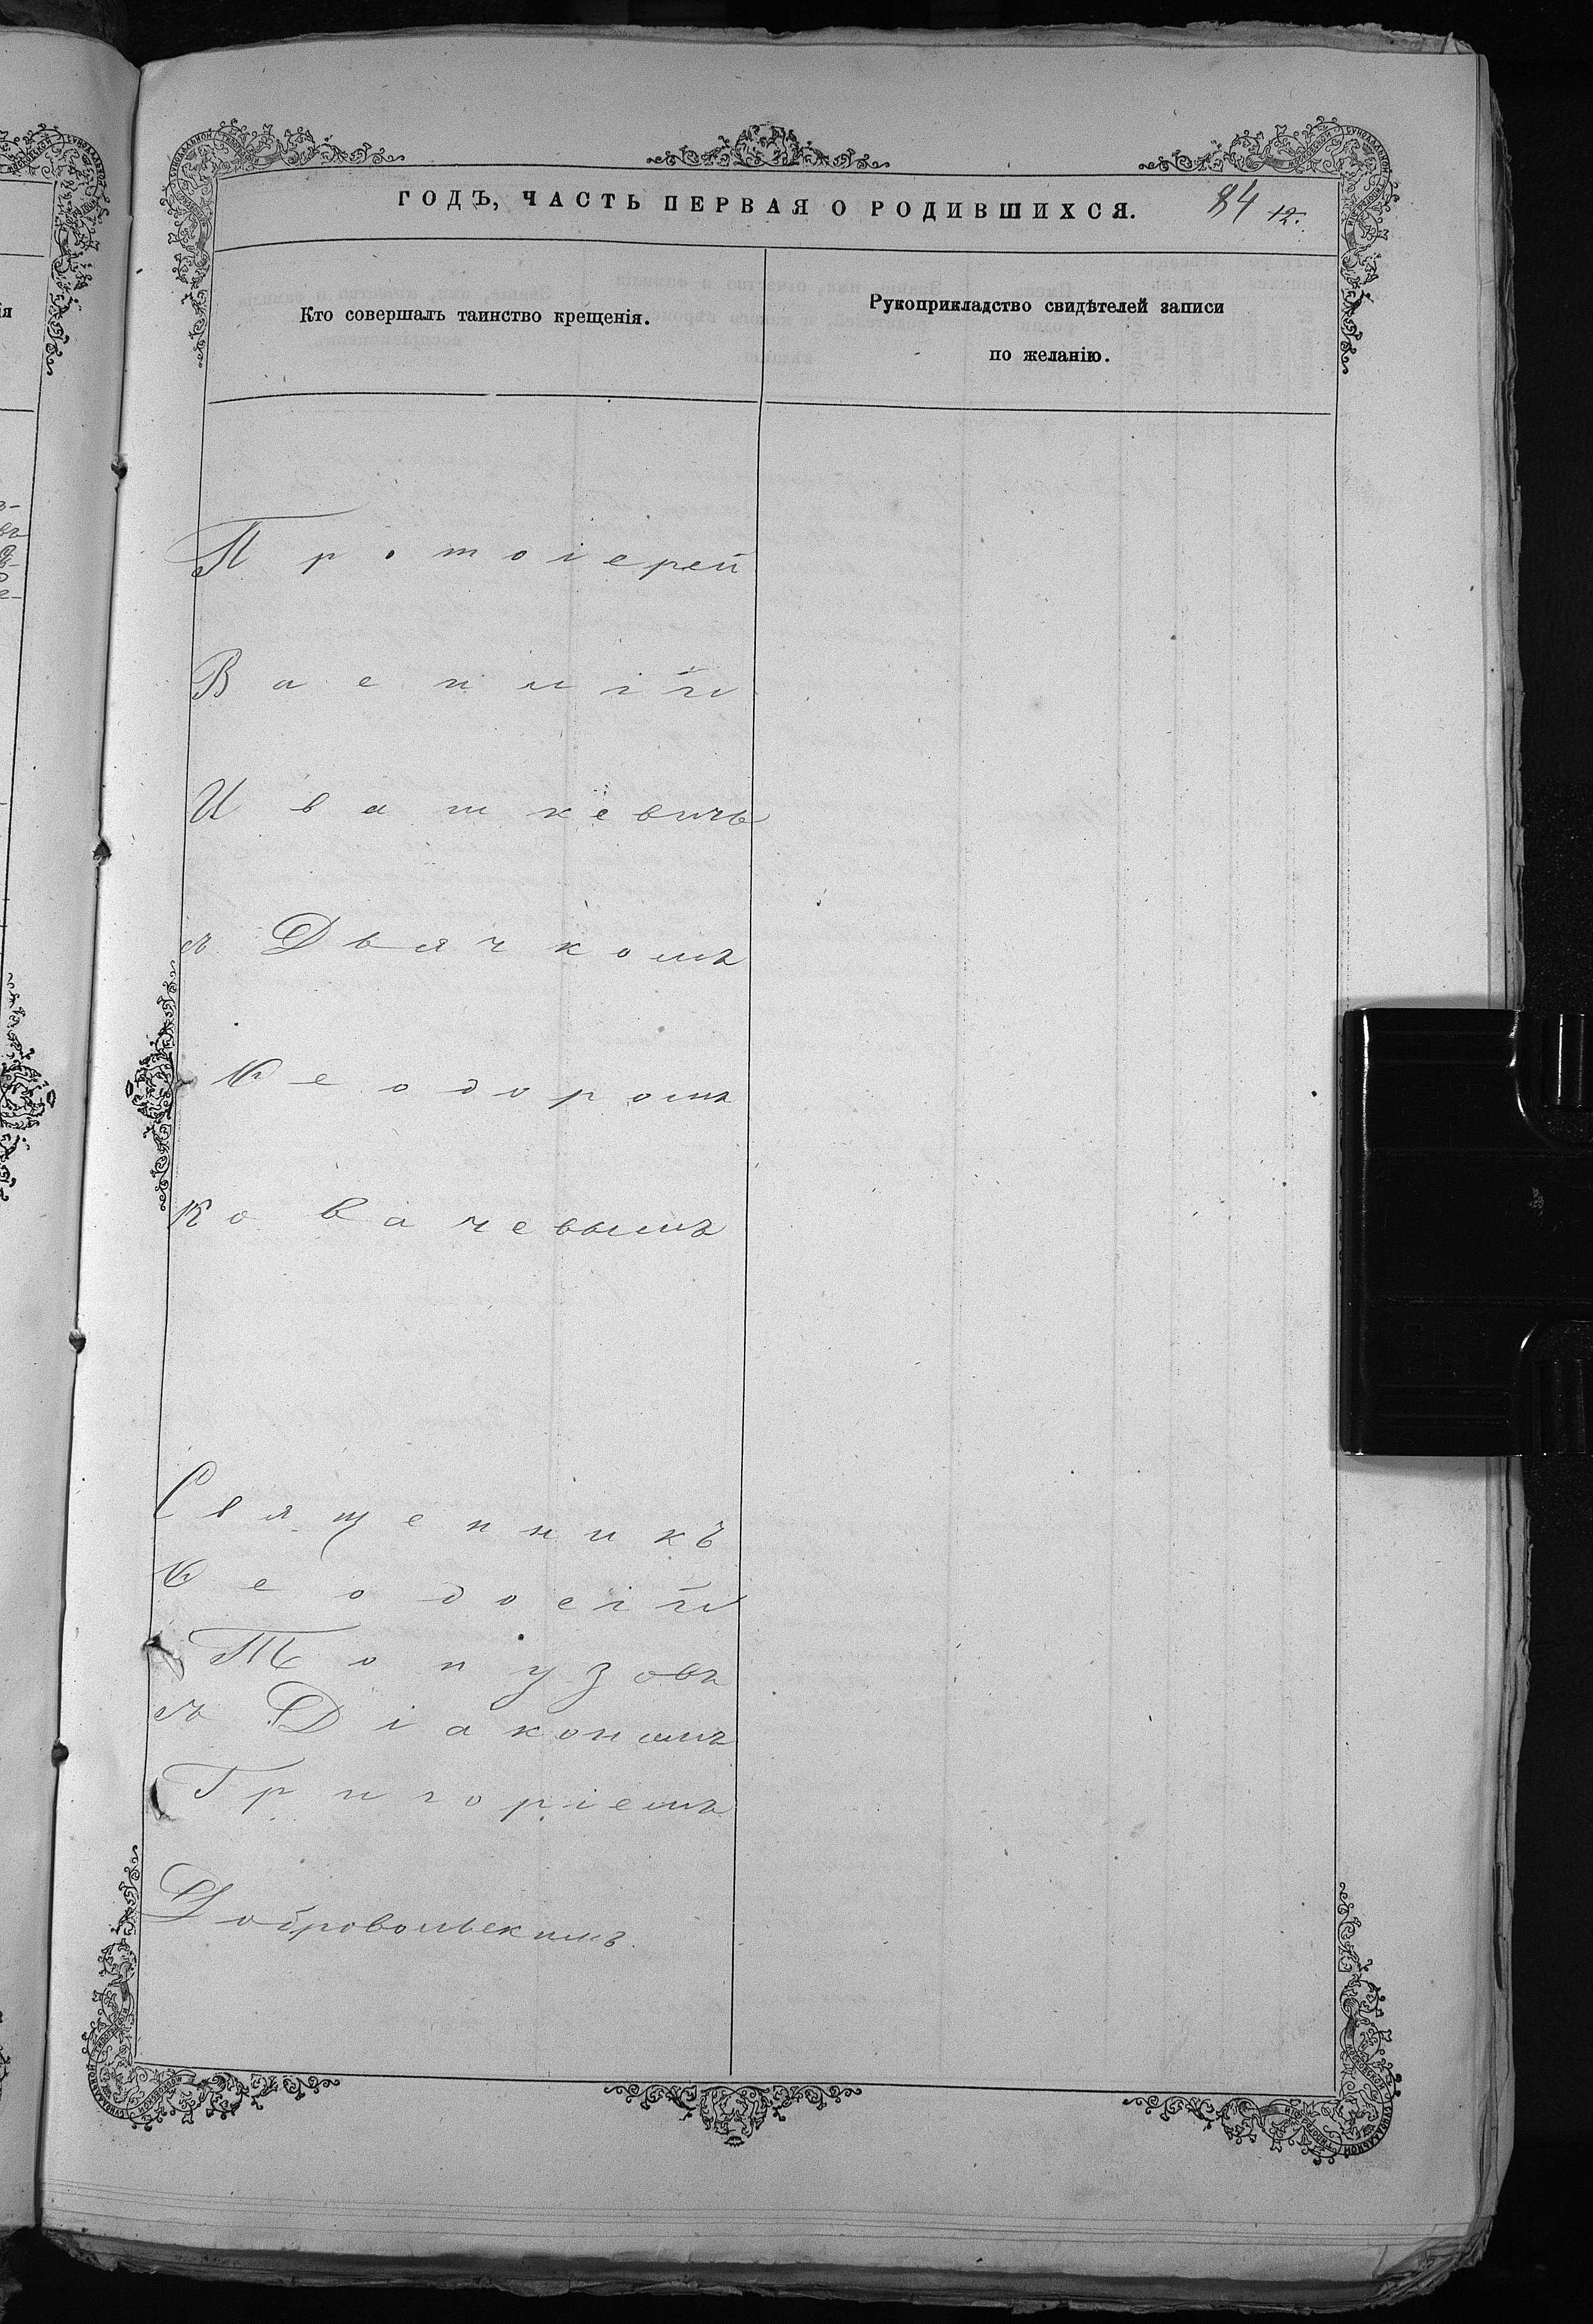 ГОДЪ, ЧАСТЬ ПЕРВАЯ О РОДИВШИХСЯ.
84 12.
Кто совершалъ таинство крещенія.
Рукоприкладство свидѣтелей записи
по желанію.
Протоіерей
Василій
Ивашкевичъ
съ Дьячкомъ
Ѳеодоромъ
Ковачевымъ
Священникъ
Ѳеодосій
Топузовъ
съ Діакономъ
Григоріемъ
Добровольскимъ